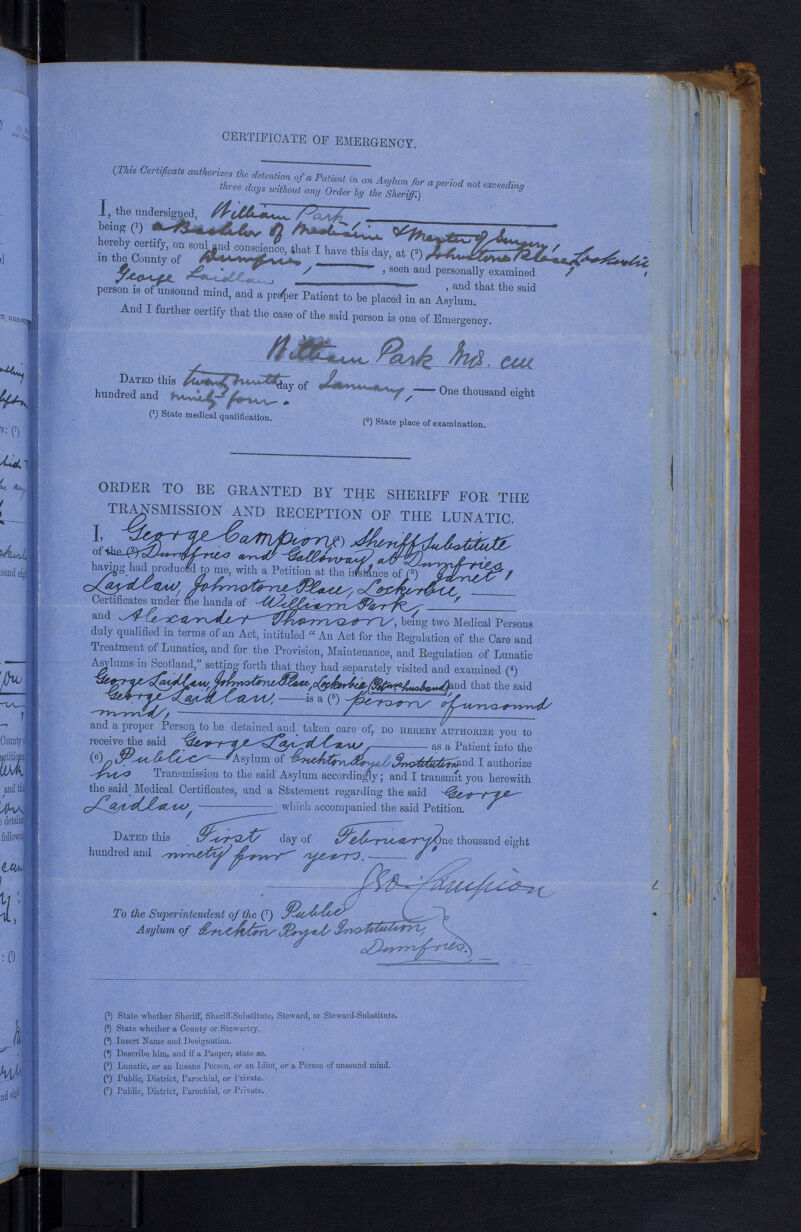 CERTIFICATE OF EMERGENCY.
(This Certificate authorizes the detention of a Patient in an Asylum for a period not exceeding
three days without any Order by the Sheriff.)
I, the undersigned, William Park,
being (¹) a Bachelor of Medicine & Master of Surgery,
hereby certify, on soul and conscience, that I have this day, at (²) Johnstone Place, Lockerbie,
in the County of Dumfries, , seen and personally examined
George Laidlaw , and that the said
person is of unsound mind, and a proper Patient to be placed in an Asylum.
And I further certify that the case of the said person is one of Emergency.
William Park M.B. CM
DATED this twenty ninth day of January, — One thousand eight
hundred and ninety four.
(¹) State medical qualification. (²) State place of examination.
ORDER TO BE GRANTED BY THE SHERIFF FOR THE
TRANSMISSION AND RECEPTION OF THE LUNATIC.
I, George Campion (¹) Sheriff Substitute
of the (²) Dumfries and Galloway, at Dumfries,
having had produced to me, with a Petition at the instance of (³) Janet
Laidlaw, Johnstone Place, Lockerbie,
Certificates under the hands of William Park,
and Alexander Thomson, being two Medical Persons
duly qualified in terms of an Act, intituled “ An Act for the Regulation of the Care and
Treatment of Lunatics, and for the Provision, Maintenance, and Regulation of Lunatic
Asylums in Scotland,” setting forth that they had separately visited and examined (⁴)
George Laidlaw, Johnstone Place, Lockerbie (Petnrs husband) and that the said
George Laidlaw. — is a (⁵) person of unsound
mind,
and a proper Person to be detained and taken care of, DO HEREBY AUTHORIZE you to
receive the said George Laidlaw, as a Patient into the
(⁶) Public Asylum of Crichton Royal Institution and I authorize
his Transmission to the said Asylum accordingly; and I transmit you herewith
the said Medical Certificates, and a Statement regarding the said George
Laidlaw, which accompanied the said Petition.
DATED this First day of February One thousand eight
hundred and ninety four years.
Geo. Campion
To the Superintendent of the (⁷) Public
Asylum of Crichton Royal Institution,
Dumfries.
(¹) State whether Sheriff, Sheriff-Substitute, Steward, or Steward-Substitute.
(²) State whether a County or Stewartry.
(³) Insert Name and Designation.
(⁴) Describe him, and if a Pauper, state so.
(⁵) Lunatic, or an Insane Person, or an Idiot, or a Person of unsound mind.
(⁶) Public, District, Parochial, or Private.
(⁷) Public, District, Parochial, or Private.